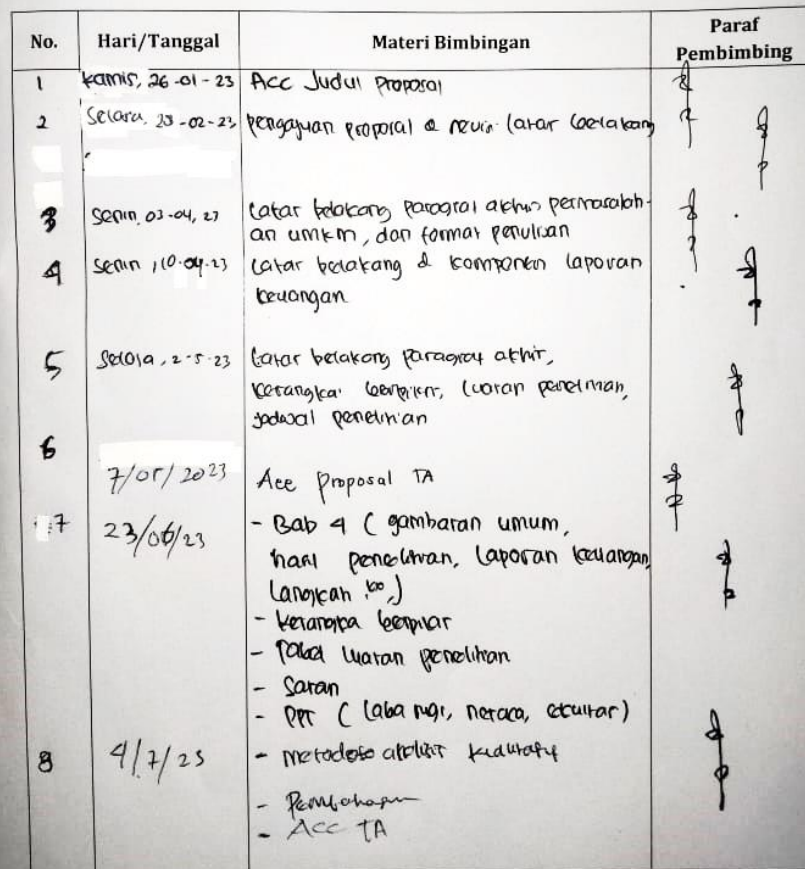 No. Hari/Tanggal Materi Bimbingan Paraf Pembimbing
1 Kamis, 26-01-23 Acc Judul Proposal
2 Selasa, 28-02-23, pengajuan proposal & revisi latar belakang
3 Senin, 03-04, 23 Latar belakang paragraf akhir, permasalah-
an umkm, dan format penulisan
4 Senin, 10-04-23 Latar belakang & komponen laporan
keuangan
5 Selasa, 2-5-23 Latar belakang paragraf akhir,
kerangka berpikir, luaran penelitian,
jadwal penelitian
6
7/05/2023 Acc Proposal TA
7 23/06/23 - Bab 4 ( gambaran umum,
hasil penelitian, laporan keuangan,
langkah )
- Kerangka berpikir
- Tabel luaran penelitian
- Saran
- PPT ( laba rugi, neraca, ekuitas )
8 4/7/23 - metode analisis
- Pembahasan
- ACC TA